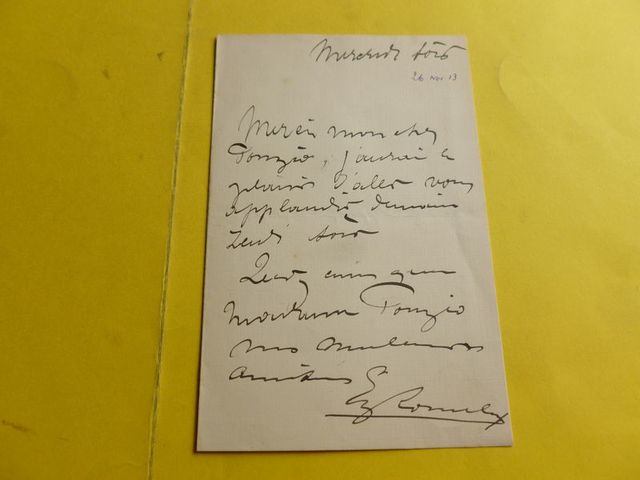 Mercredi soir
26 Nov 13
Merci mon cher
Ponzio, j'aurai le
plaisir d'aller vous
applaudir demain
Jeudi soir
ainsi que
Madame Ponzio
nos meilleures
amitiés